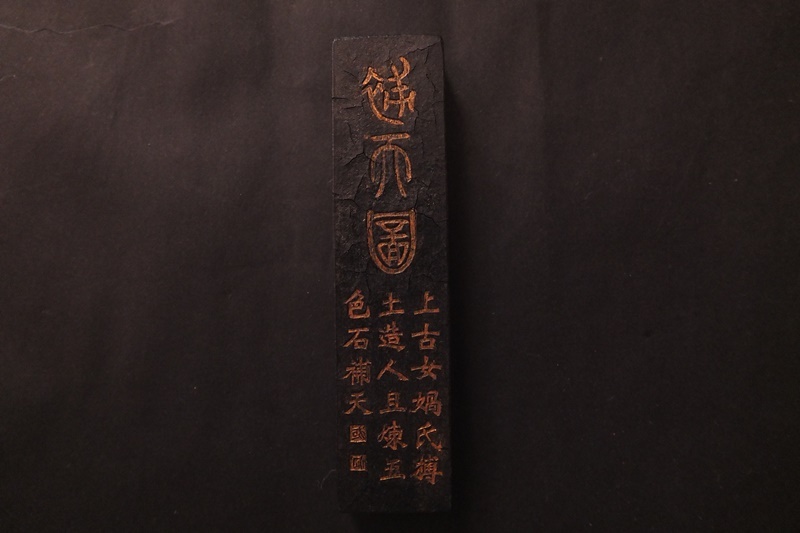 補天圖
上古女媧氏摶
土造人且煉五
色石補天